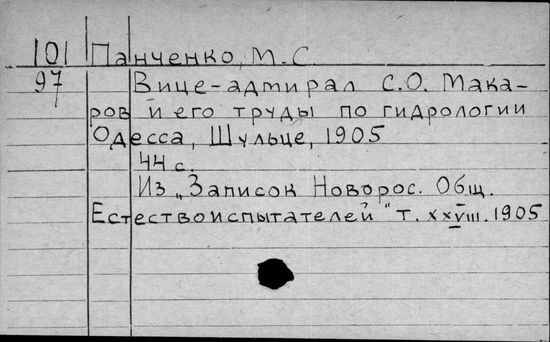 101 Панченко, М.С.
97 Вице-адмирал С.О. Мака-
ров и его труды по гидрологии
Одесса, Шульце, 1905
44 с.
Из „Записок Новорос. Общ.
Естествоиспытателей" т. XXVIII. 1905